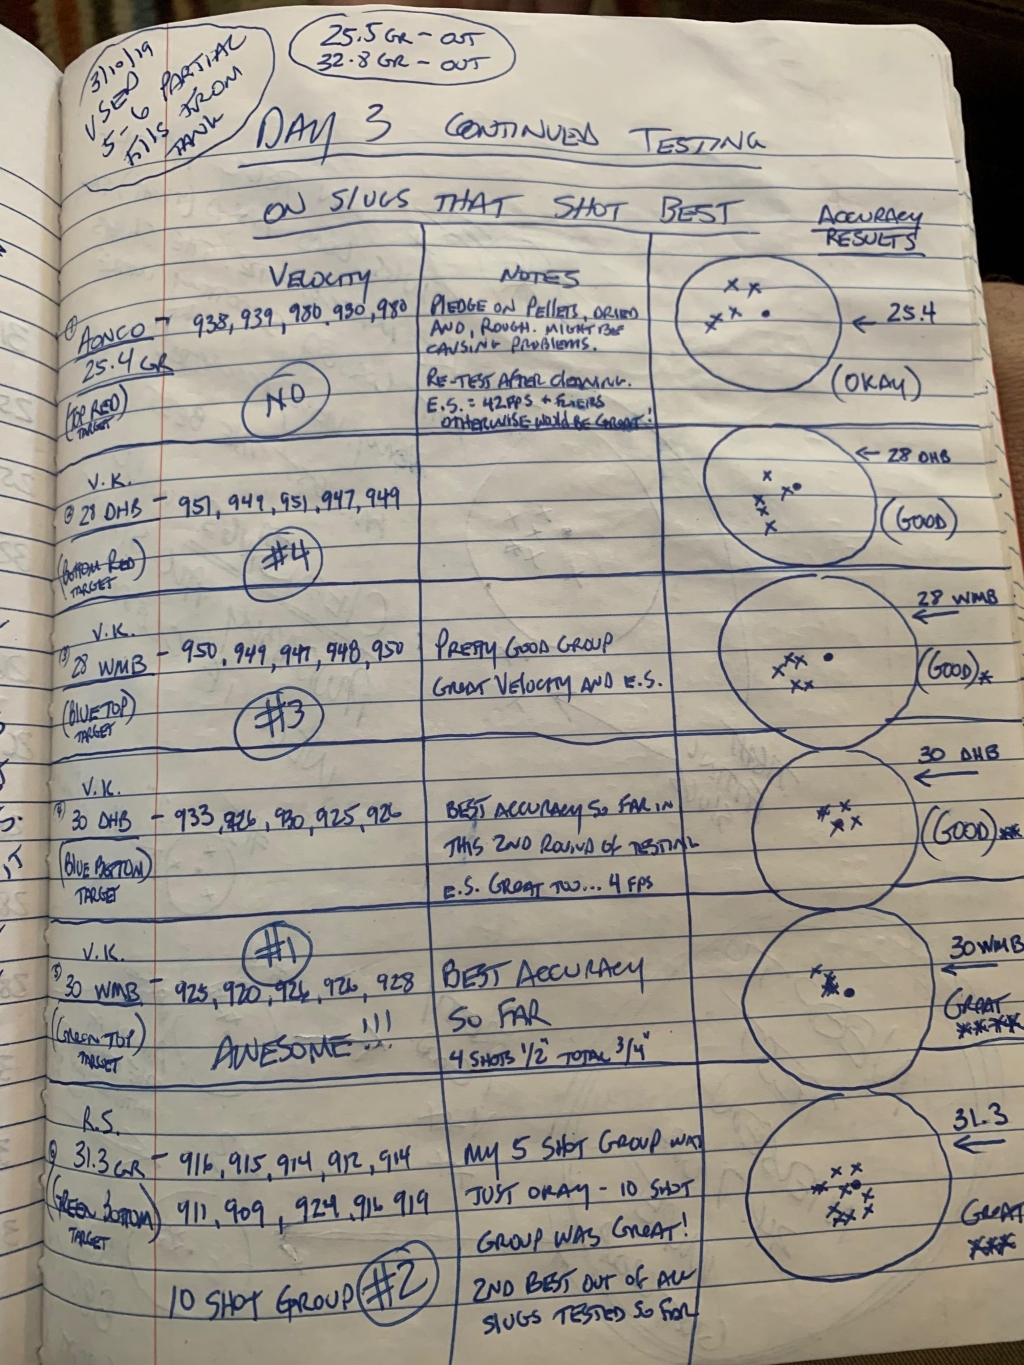 3/10/19
USED
5-6 PARTIAL
FILLS FROM
TANK
25.5 GR - OUT
32.8 GR - OUT
DAY 3 CONTINUED TESTING
ON SLUGS THAT SHOT BEST
ACCURACY
RESULTS
VELOCITY
NOTES
① AONCO - 938, 939, 980, 930, 980
25.4 GR
(TOP RED)
TARGET
NO
PLEDGE ON PELLETS, DRIED
AND, ROUGH. MIGHT BE
CAUSING PROBLEMS.
RE-TEST AFTER CLEANING.
E.S. = 42 FPS + FLIERS
OTHERWISE WOULD BE GREAT!
← 25.4
(OKAY)
V.K.
② 28 DHB - 951, 949, 951, 947, 949
(BOTTOM RED)
TARGET
#4
← 28 DHB
(GOOD)
V.K.
③ 28 WMB - 950, 949, 947, 948, 950
(BLUE TOP)
TARGET
#3
PRETTY GOOD GROUP
GREAT VELOCITY AND E.S.
28 WMB
←
(GOOD)*
V.K.
④ 30 DHB - 933, 926, 930, 925, 926
(BLUE BOTTOM)
TARGET
BEST ACCURACY SO FAR IN
THIS 2ND ROUND OF TESTING
E.S. GREAT TOO... 4 FPS
30 DHB
←
(GOOD)**
V.K.
#1
⑤ 30 WMB - 925, 920, 926, 926, 928
(GREEN TOP)
TARGET
AWESOME!!!
BEST ACCURACY
SO FAR
4 SHOTS 1/2" TOTAL 3/4"
30 WMB
←
GREAT
****
R.S.
⑥ 31.3 GR - 916, 915, 914, 912, 914
(GREEN BOTTOM) 911, 909, 924, 916, 919
TARGET
10 SHOT GROUP #2
MY 5 SHOT GROUP WAS
JUST OKAY - 10 SHOT
GROUP WAS GREAT!
2ND BEST OUT OF ALL
SLUGS TESTED SO FAR
31.3
←
GREAT
***